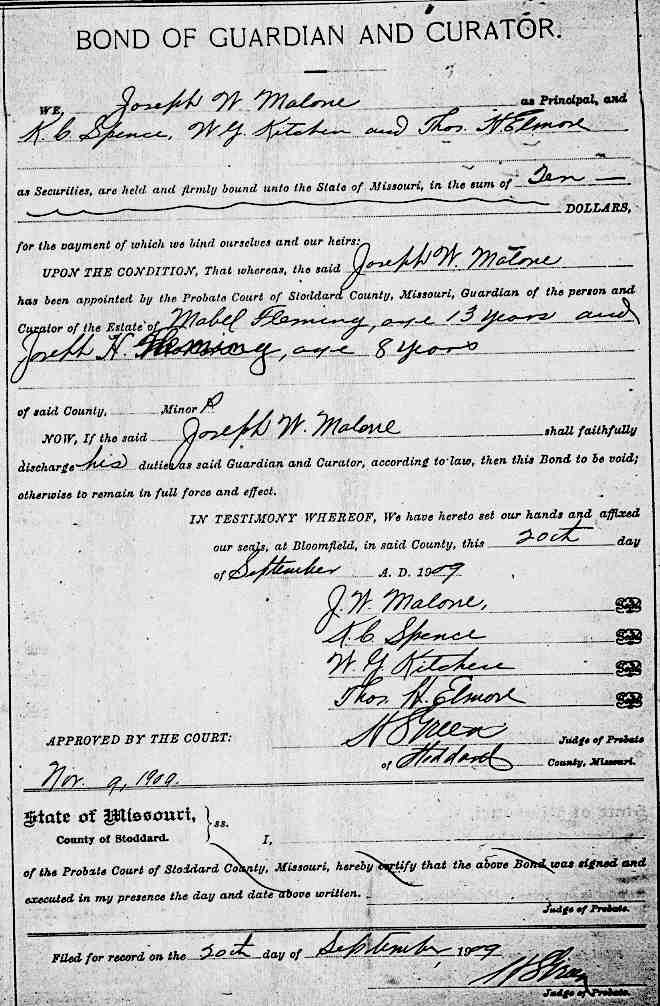 BOND OF GUARDIAN AND CURATOR.
WE, Joseph W. Malone as Principal, and
K. C. Spence, W. G. Kitchen and Thos. H Elmore
as Securities, are held and firmly bound unto the State of Missouri, in the sum of Ten
DOLLARS,
for the payment of which we bind ourselves and our heirs:
UPON THE CONDITION, That whereas, the said Joseph W. Malone
has been appointed by the Probate Court of Stoddard County, Missouri, Guardian of the person and
Curator of the Estate of Mabel Fleming, age 13 years and
Joseph H. Fleming, age 8 years
of said County, Minor s
NOW, If the said Joseph W. Malone shall faithfully
discharge his duties as said Guardian and Curator, according to law, then this Bond to be void;
otherwise to remain in full force and effect.
IN TESTIMONY WHEREOF, We have hereto set our hands and affixed
our seals, at Bloomfield, in said County, this 20th day
of September A. D. 1909
J. W. Malone, Seal
K. C. Spence Seal
W. G. Kitchen Seal
Thos. H. Elmore Seal
APPROVED BY THE COURT: Green Judge of Probate
of Stoddard County, Missouri.
Nov. 9, 1909.
State of Missouri, ss.
County of Stoddard. I,
of the Probate Court of Stoddard County, Missouri, hereby certify that the above Bond was signed and
executed in my presence the day and date above written.
Judge of Probate.
Filed for record on the 20th day of September, 1909
Judge of Probate.